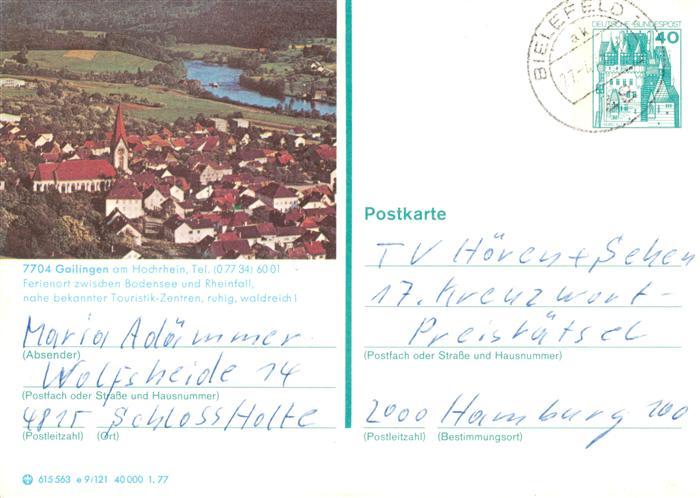 BIELEFELD 1
DEUTSCHE BUNDESPOST
40
7704 Gailingen am Hochrhein, Tel. (0 77 34) 60 01
Ferienort zwischen Bodensee und Rheinfall,
nahe bekannter Touristik-Zentren, ruhig, waldreich!
Maria Adämmer
(Absender)
Wolfsheide 14
(Postfach oder Straße und Hausnummer)
4815 Schloss Holte
(Postleitzahl) (Ort)
615 563 e 9/121 40 000 1. 77
Postkarte
TV Hören + Sehen
17. Kreuzwort-
Preisrätsel
(Postfach oder Straße und Hausnummer)
2000 Hamburg 100
(Postleitzahl) (Bestimmungsort)